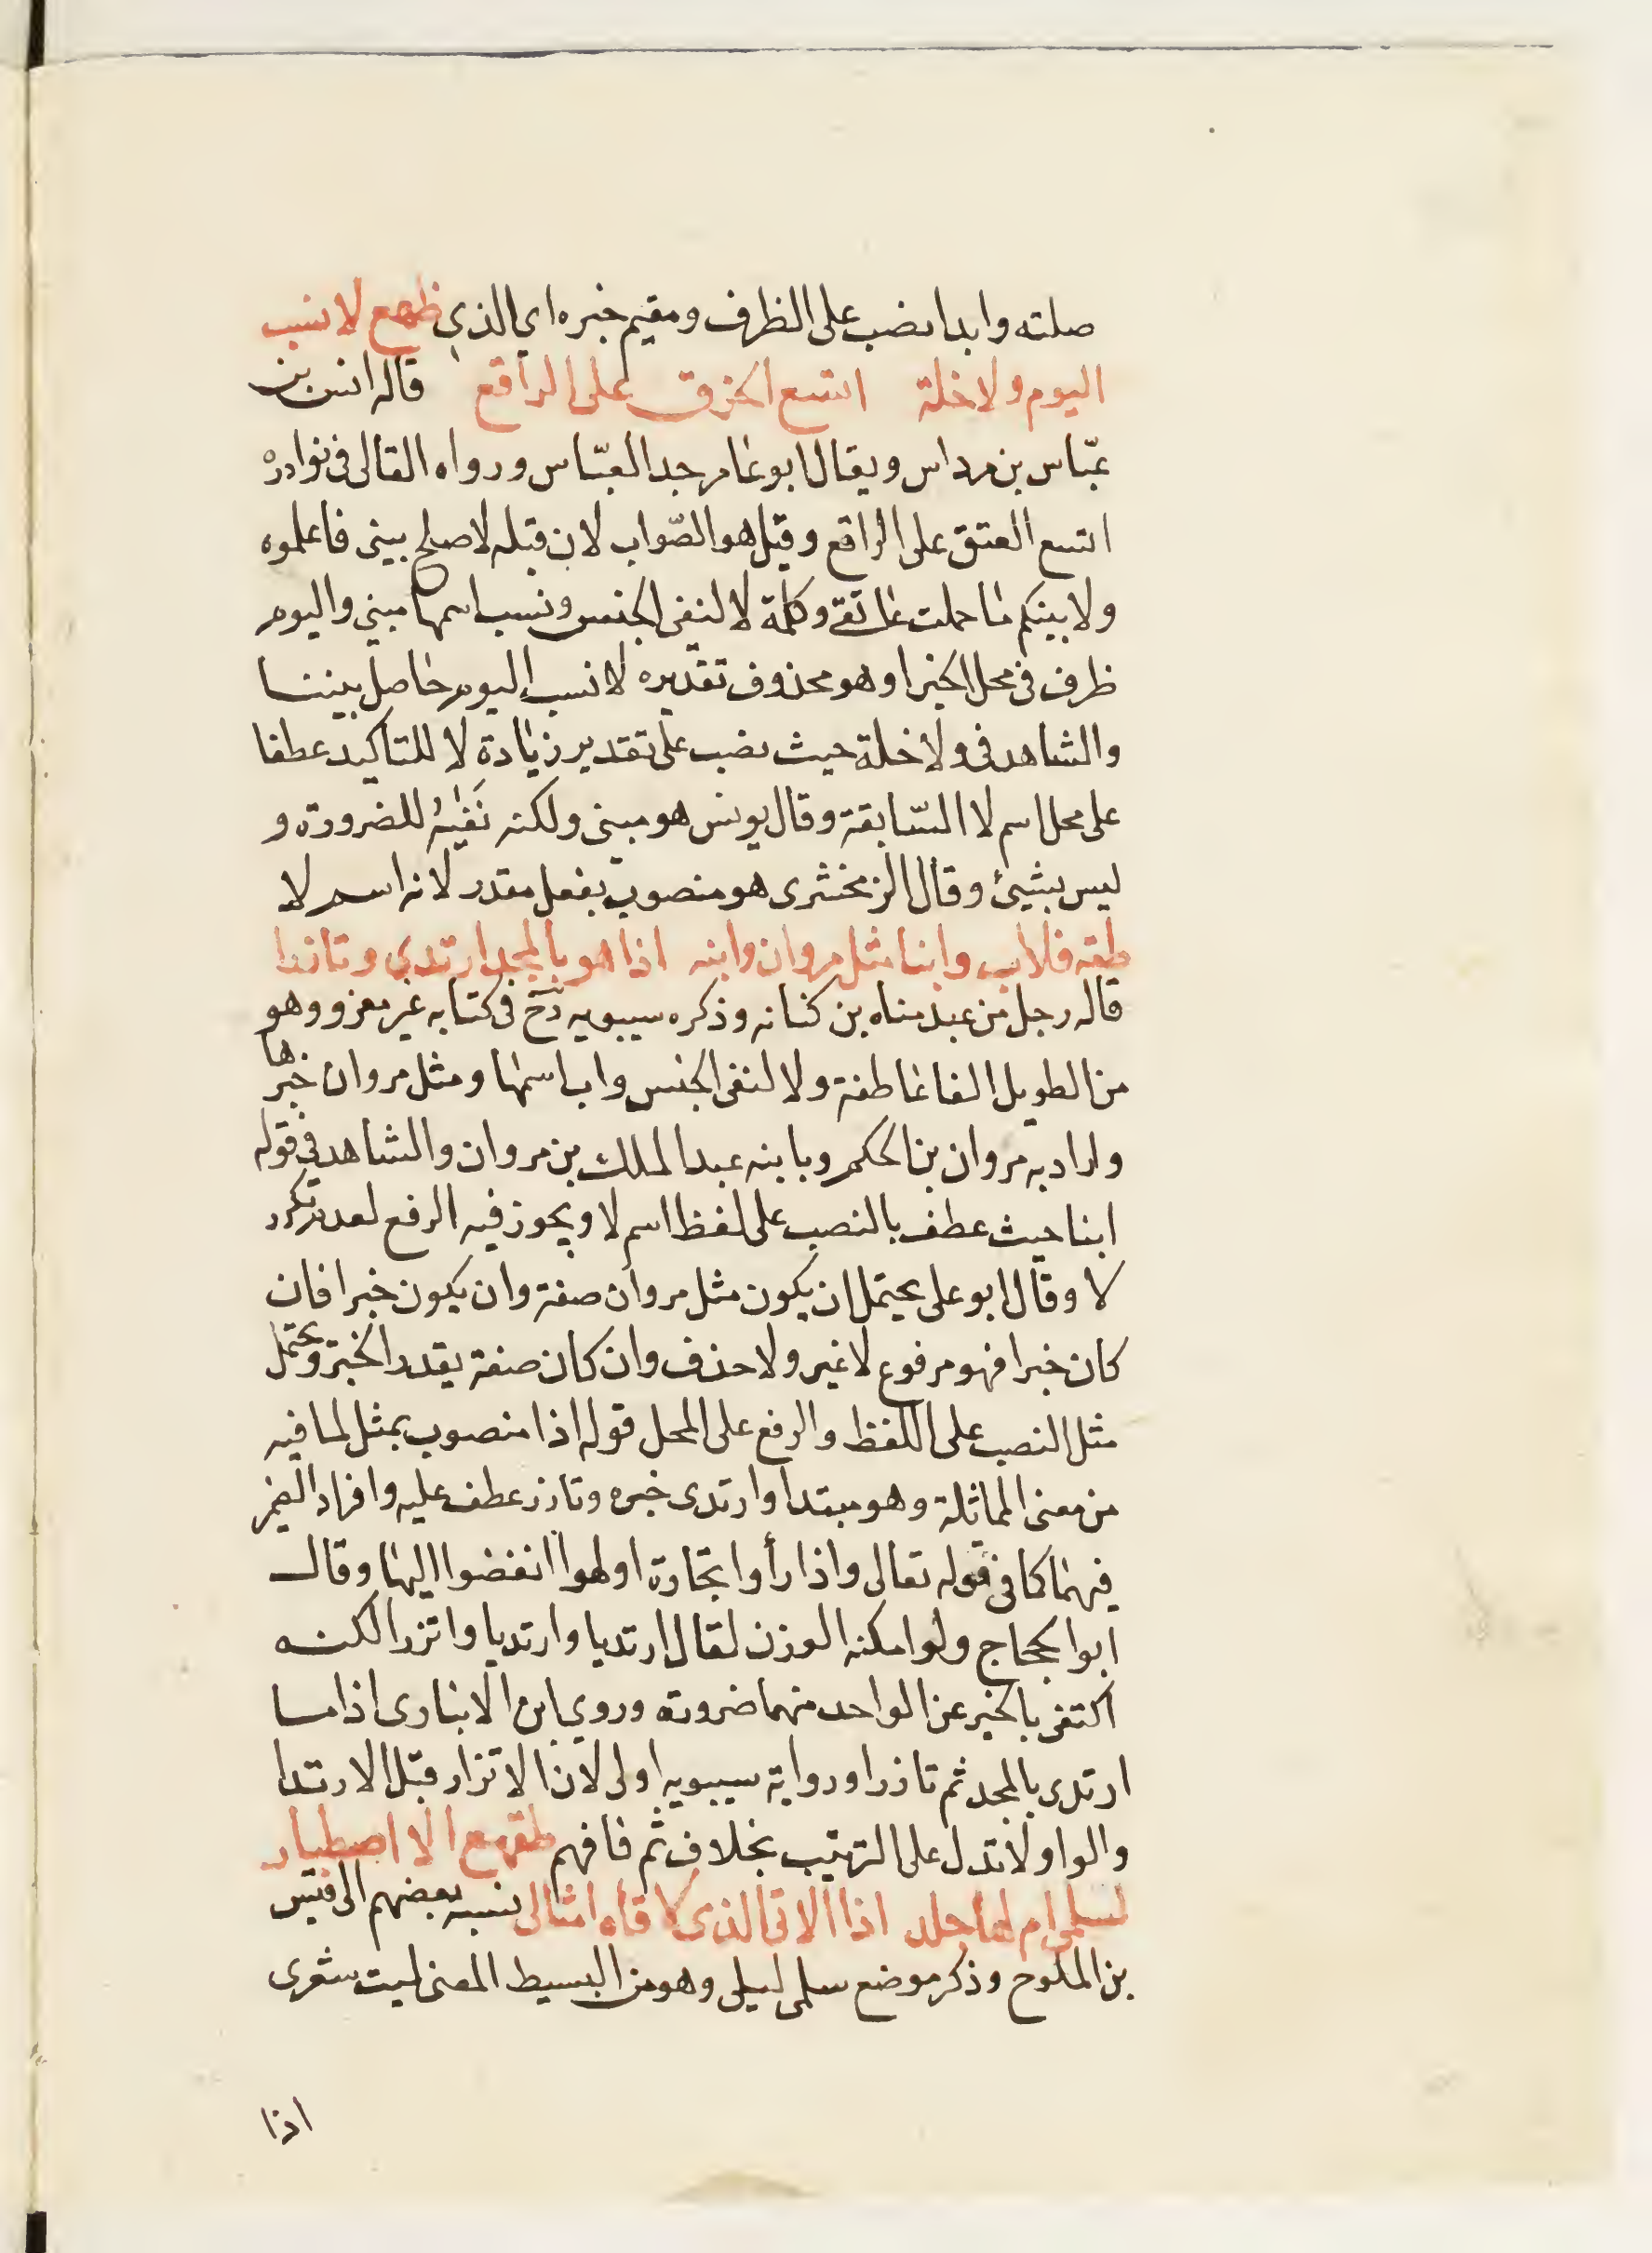 صلته وابدا نصب على الظرف ومقيم خبره اي الذي ظهع لا نسب
اليوم ولا خلة اتسع الخرق على الراقع قاله انس بن
عبّاس بن مرداس ويقال ابو عامر جد العبّاس ورواه القالى فى نوادره
اتسع الفتق على الراقع وقيل هو الصّواب لان قبله لا صلح بينى فاعلموه
ولا بينكم ما حملت عاتقى وكلمة لا لنفى الجنس ونسب اسمها مبنى واليوم
ظرف فى محل الخبر او هو محذوف تقديره لا نسب اليوم حاصل بيننا
والشاهد فى ولا خلة حيث نصب على تقدير زيادة لا للتاكيد عطفا
على محل اسم لا السّابقة وقال يونس هو مبنى ولكنه نفيه للضرورة و
ليس بشيئ وقال الزمخشرى هو منصوب بفعل مقدر لانه اسم لا
طقه فلا اب وابنا مثل مروان وابنه اذا هو بالمجد ارتدي وتازرا
قاله رجل من عبد مناه بن كنانه وذكره سيبويه رح فى كتابه غير معزو وهو
من الطويل الفا عاطفة ولا لنفى الجنس واب اسمها ومثل مروان خبرها
واراد به مروان بن الحكم وبابنه عبد الملك بن مروان والشاهد فى قوله
ابنا حيث عطف بالنصب على لفظ اسم لا ويجوز فيه الرفع لعدم تكرر
لا وقال ابو على يحتمل ان يكون مثل مروان صفة وان يكون خبرا فان
كان خبرا فهو مرفوع لا غير ولا حذف وان كان صفة يقدر الخبر ويحتمل
مثل النصب على اللفظ والرفع على المحل قوله اذا منصوب بمثل لما فيه
من معنى المماثلة وهو مبتدا وارتدى خبره وتازر عطف عليه وافراد الضمير
فيهما كما فى قوله تعالى واذا رأوا تجارة او لهوا انفضوا اليها وقال
ابو الحجاج ولو امكنه الوزن لقال ارتديا وارتديا واتزرا لكنه
اكتفى بالخبر عن الواحد منهما ضرورة وروي ابن الانبارى اذا ما
ارتدى بالمجد ثم تازرا ورواية سيبويه اولى لان الاتزار قبل الارتدا
والواو لا تدل على الترتيب بخلاف ثم فافهم طقهع الا اصطبار
لسلمى ام لها جلد اذا الاقى الذى لاقاه امثالى نسبه بعضهم الى قيس
بن الملوح وذكر موضع سلمى ليلى وهو من البسيط المعنى ليت شعرى
اذا